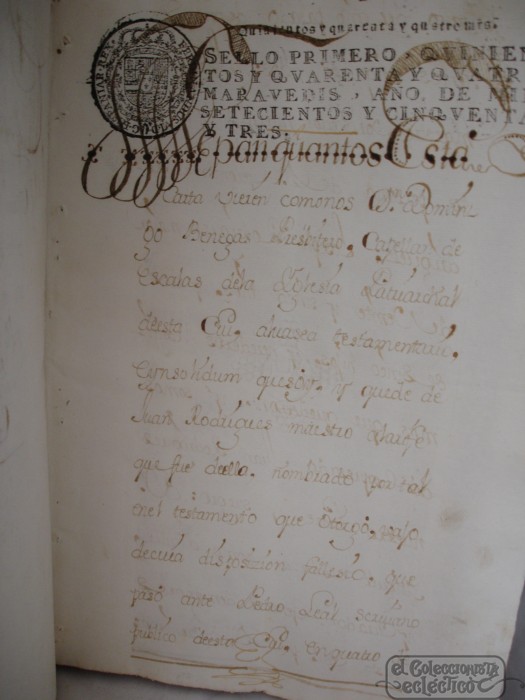 Quinientos y quarenta y quatro mrs.
SELLO PRIMERO, QVINIEN
TOS Y QVARENTA Y QVATR
MARAVEDIS, AÑO DE MIL
SETECIENTOS Y CINQVENTA
Y TRES.
Sepan quantos Esta
Carta vieren como nos Dn. Domin
go Benegas Presbitero, Capellan de
Escalas de la Yglesia
desta Ciu. testamentari.
Eynsolidum que soy y quede de
Juan Rodrigues maestro Alarife
que fue della. nombrado por tal
enel testamento que otorgo, vajo
decuia dispozizion fallesio, que
paso ante Pedro Leal scriuano
publico desta Ciu. en quatro
el Coleccionista
ecléctico